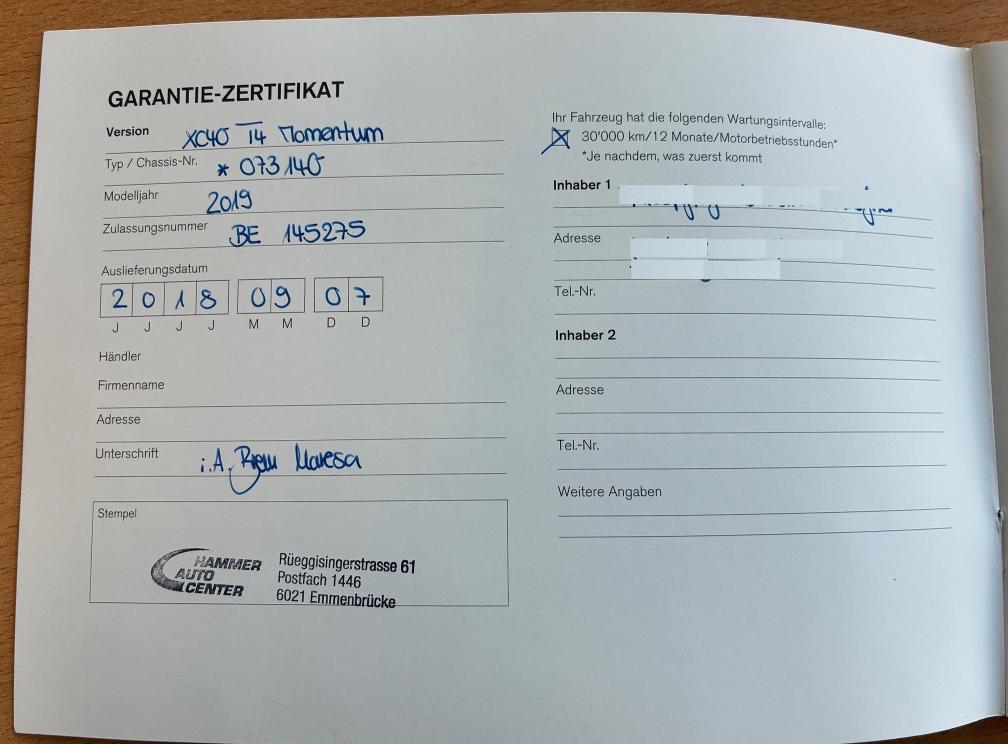 GARANTIE-ZERTIFIKAT
Version XC40 T4 Momentum
Typ / Chassis-Nr. * 073140
Modelljahr 2019
Zulassungsnummer BE 145275
Auslieferungsdatum
2 0 1 8 0 9 0 7
J J J J M M D D
Händler
Firmenname
Adresse
Unterschrift i.A.
Stempel
HAMMER
AUTO
CENTER
Rüeggisingerstrasse 61
Postfach 1446
6021 Emmenbrücke
Ihr Fahrzeug hat die folgenden Wartungsintervalle:
30'000 km/12 Monate/Motorbetriebsstunden*
*Je nachdem, was zuerst kommt
Inhaber 1
Adresse
Tel.-Nr.
Inhaber 2
Adresse
Tel.-Nr.
Weitere Angaben